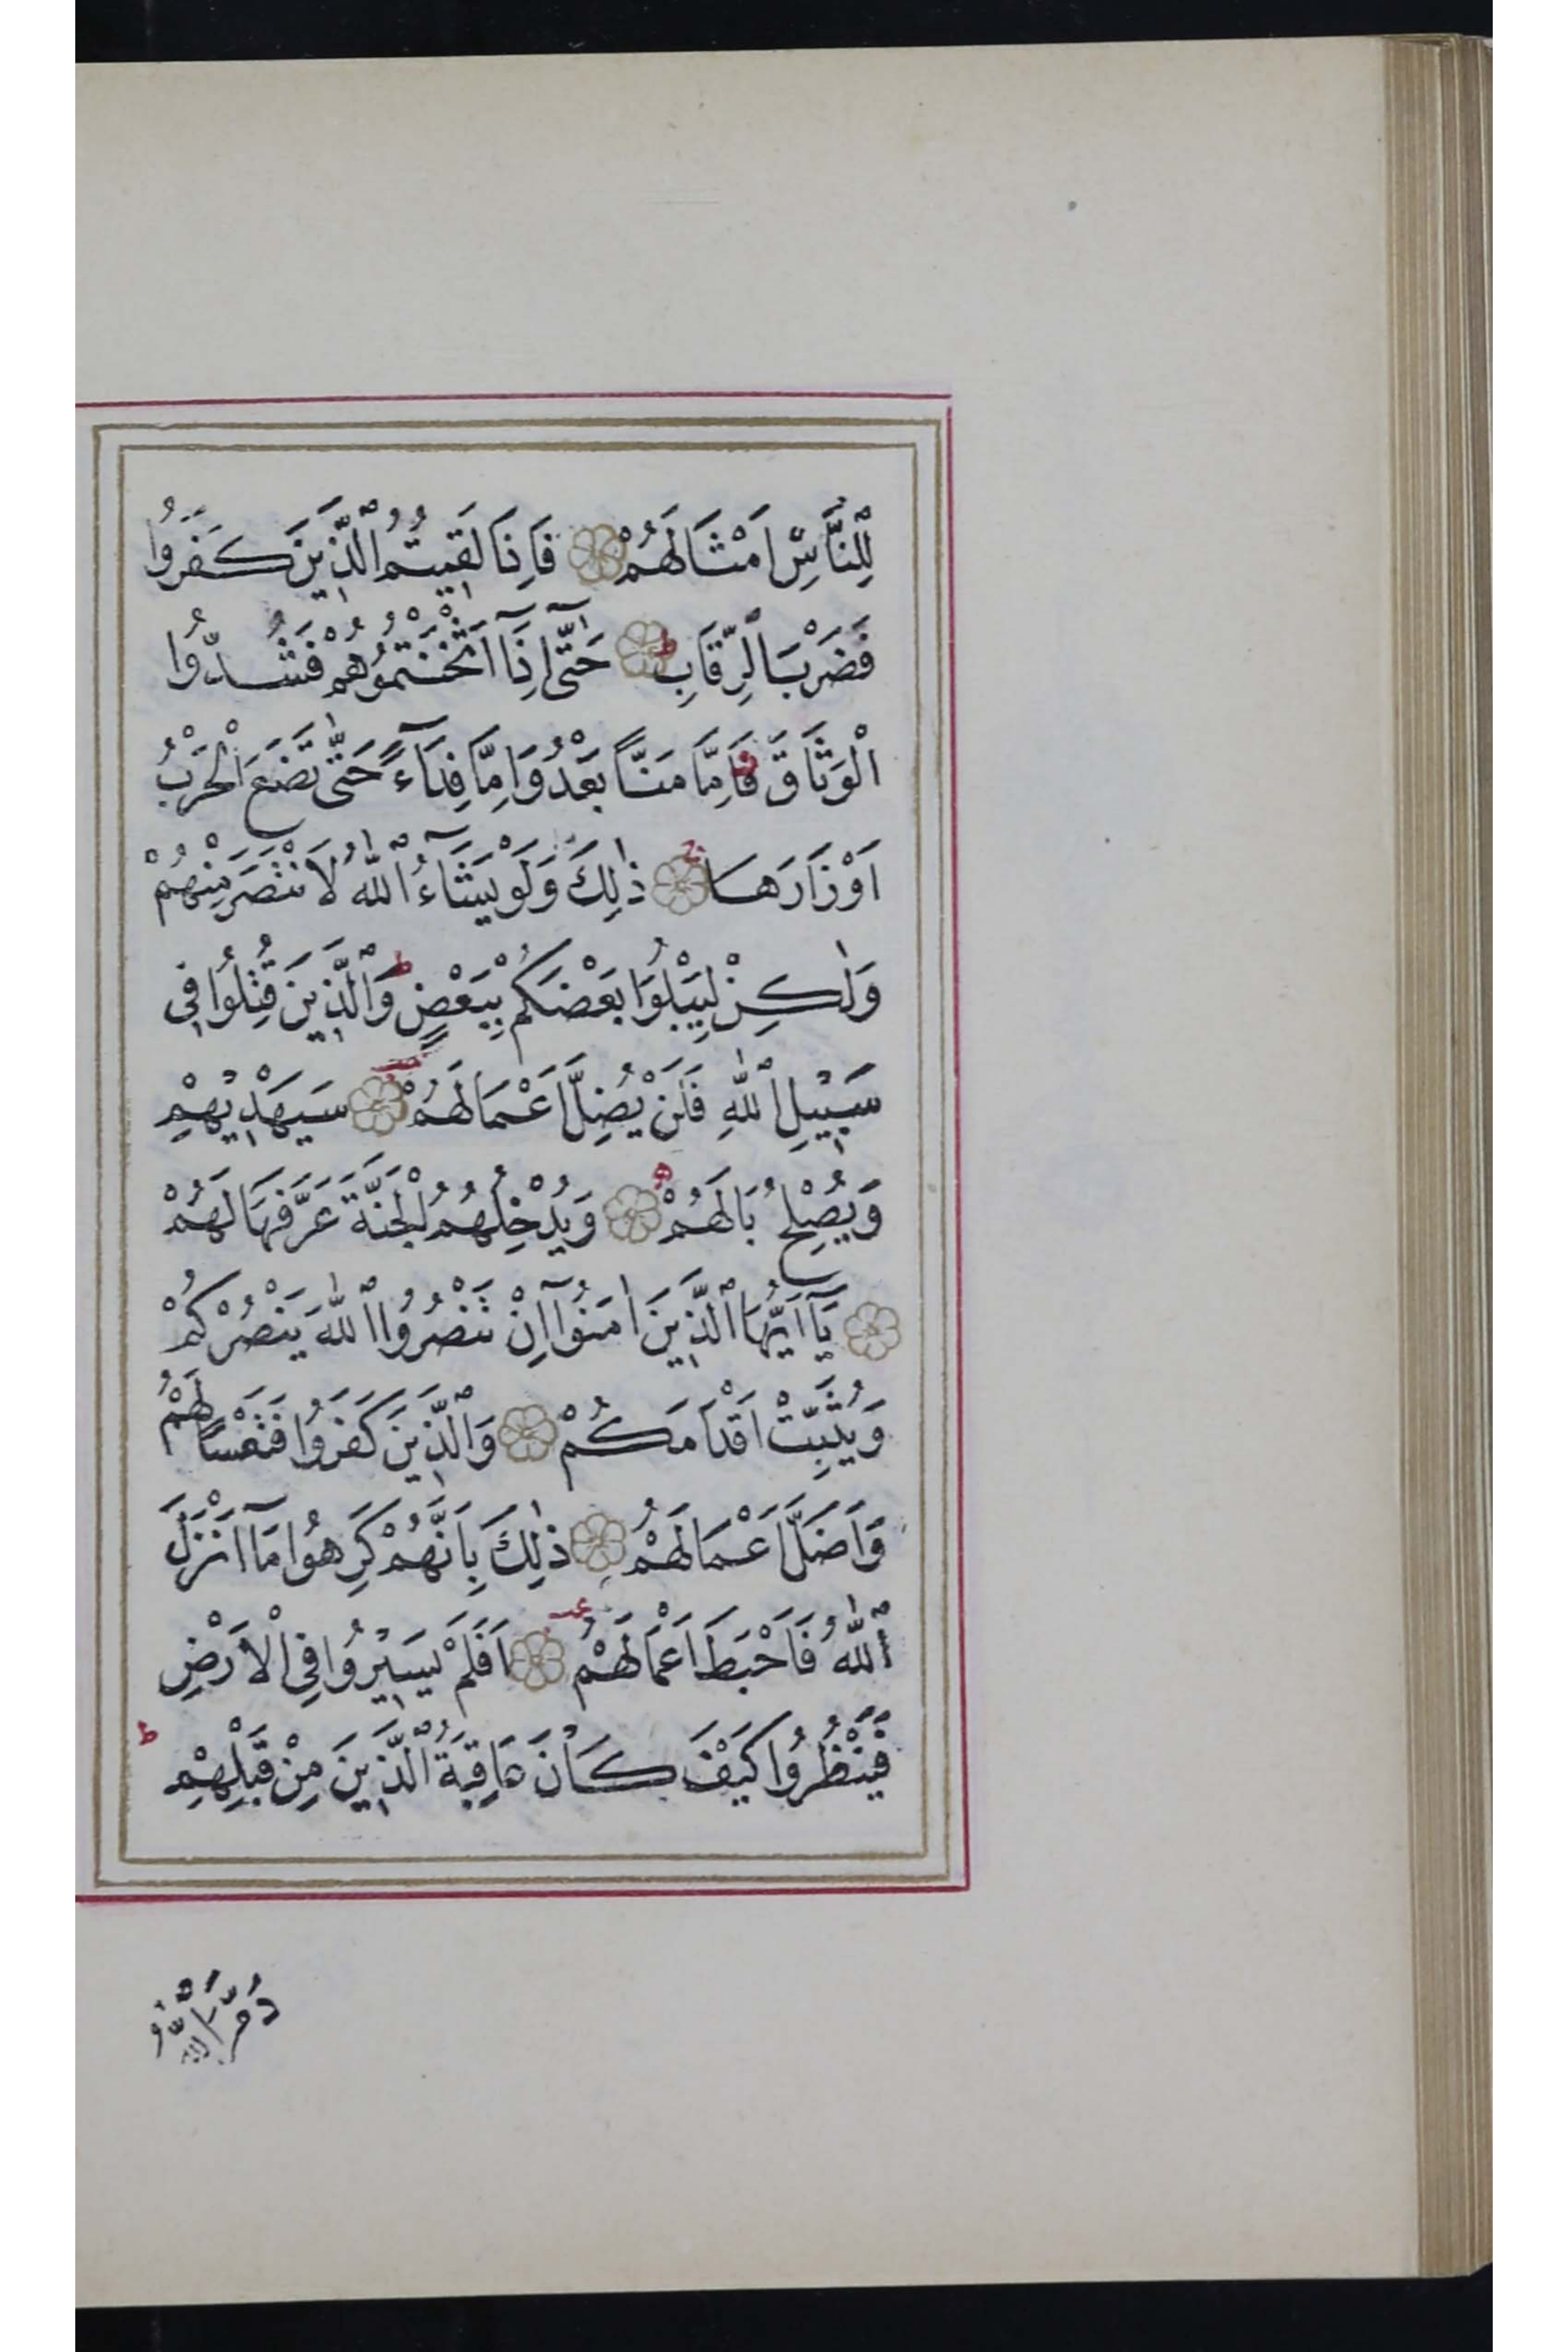 لِلنَّاسِ اَمْثَالَهُمْ ۝ فَاِذَا لَقِيتُمُ الَّذِينَ كَفَرُوا
فَضَرْبَ الرِّقَابِ ۝ ط حَتّٰٓى اِذَآ اَثْخَنْتُمُوهُمْ فَشُدُّوا
الْوَثَاقَ فَاِمَّا مَنًّا بَعْدُ وَاِمَّا فِدَآءً حَتّٰى تَضَعَ الْحَرْبُ
اَوْزَارَهَا ۝ ج ذٰلِكَ وَلَوْ يَشَآءُ اللّٰهُ لَانْتَصَرَ مِنْهُمْ
وَلٰكِنْ لِيَبْلُوَا بَعْضَكُمْ بِبَعْضٍ ط وَالَّذِينَ قُتِلُوا فِي
سَبِيْلِ اللّٰهِ فَلَنْ يُضِلَّ اَعْمَالَهُمْ ۝ سَيَهْدِيْهِمْ
وَيُصْلِحُ بَالَهُمْ ۝ وَيُدْخِلُهُمُ الْجَنَّةَ عَرَّفَهَا لَهُمْ
۝ يَآ اَيُّهَا الَّذِينَ اٰمَنُوٓا اِنْ تَنْصُرُوا اللّٰهَ يَنْصُرْكُمْ
وَيُثَبِّتْ اَقْدَامَكُمْ ۝ وَالَّذِينَ كَفَرُوا فَتَعْسًا لَهُمْ
وَاَضَلَّ اَعْمَالَهُمْ ۝ ذٰلِكَ بِاَنَّهُمْ كَرِهُوا مَآ اَنْزَلَ
اللّٰهُ فَاَحْبَطَ اَعْمَالَهُمْ ۝ اَفَلَمْ يَسِيْرُوا فِي الْاَرْضِ
فَيَنْظُرُوا كَيْفَ كَانَ عَاقِبَةُ الَّذِينَ مِنْ قَبْلِهِمْ ط
دَمَّرَ اللّٰهُ